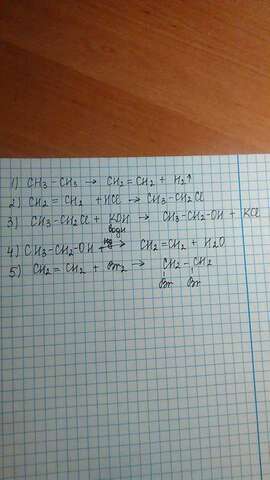 1) CH3 - CH3 → CH2 = CH2 + H2↑
2) CH2 = CH2 + HCl → CH3 - CH2Cl
3) CH3 - CH2Cl + KOH → CH3 - CH2 - OH + KCl
водн
4) CH3 - CH2 - OH → CH2 = CH2 + H2O
5) CH2 = CH2 + Br2 → CH2 - CH2
Br Br